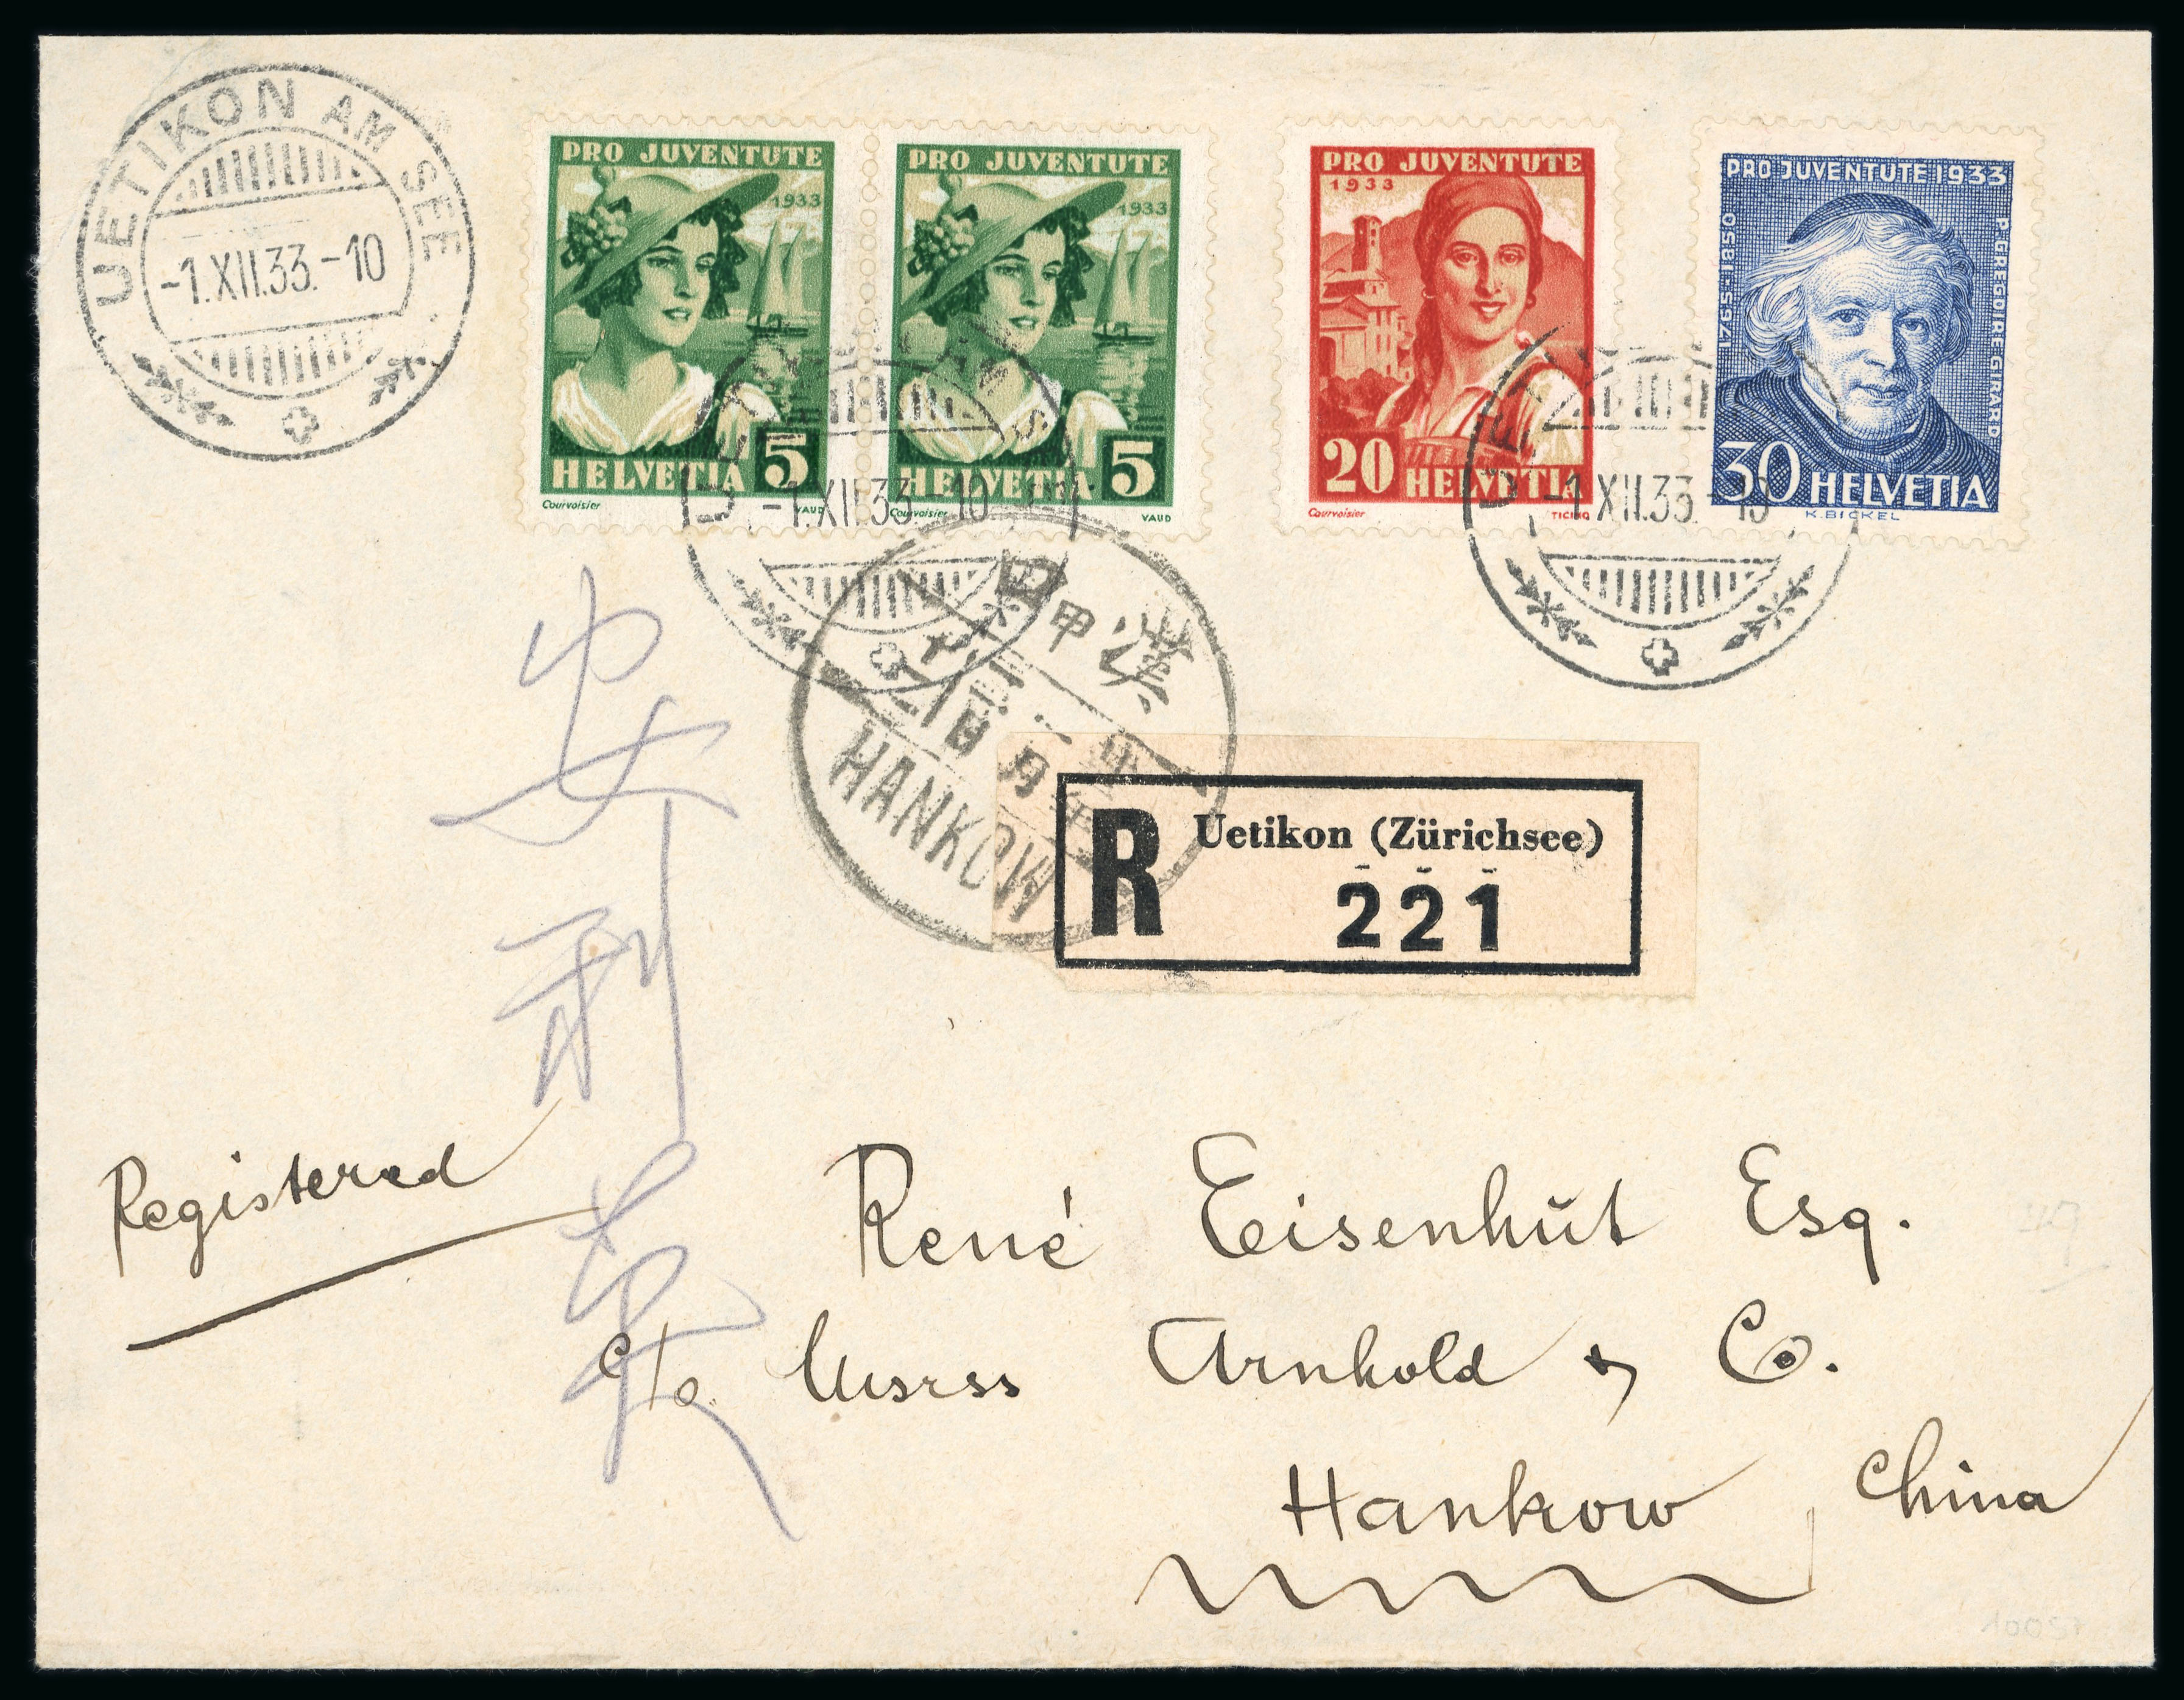 UETIKON AM SEE
-1.XII.33.-10
PRO JUVENTUTE
1933
HELVETIA 5
Courvoisier VAUD
PRO JUVENTUTE
1933
HELVETIA 5
Courvoisier VAUD
PRO JUVENTUTE
1933
20 HELVETIA
Courvoisier TICINO
PRO JUVENTUTE 1933
1765-1850
P. GREGOIRE GIRARD
30 HELVETIA
K. BICKEL
-1.XII.33.-10
-1.XII.33.-10
甲 漢
HANKOW
R Uetikon (Zürichsee)
221
安利英
Registered
René Eisenhut Esq.
c/o. Messrs Arnhold & Co.
Hankow, China